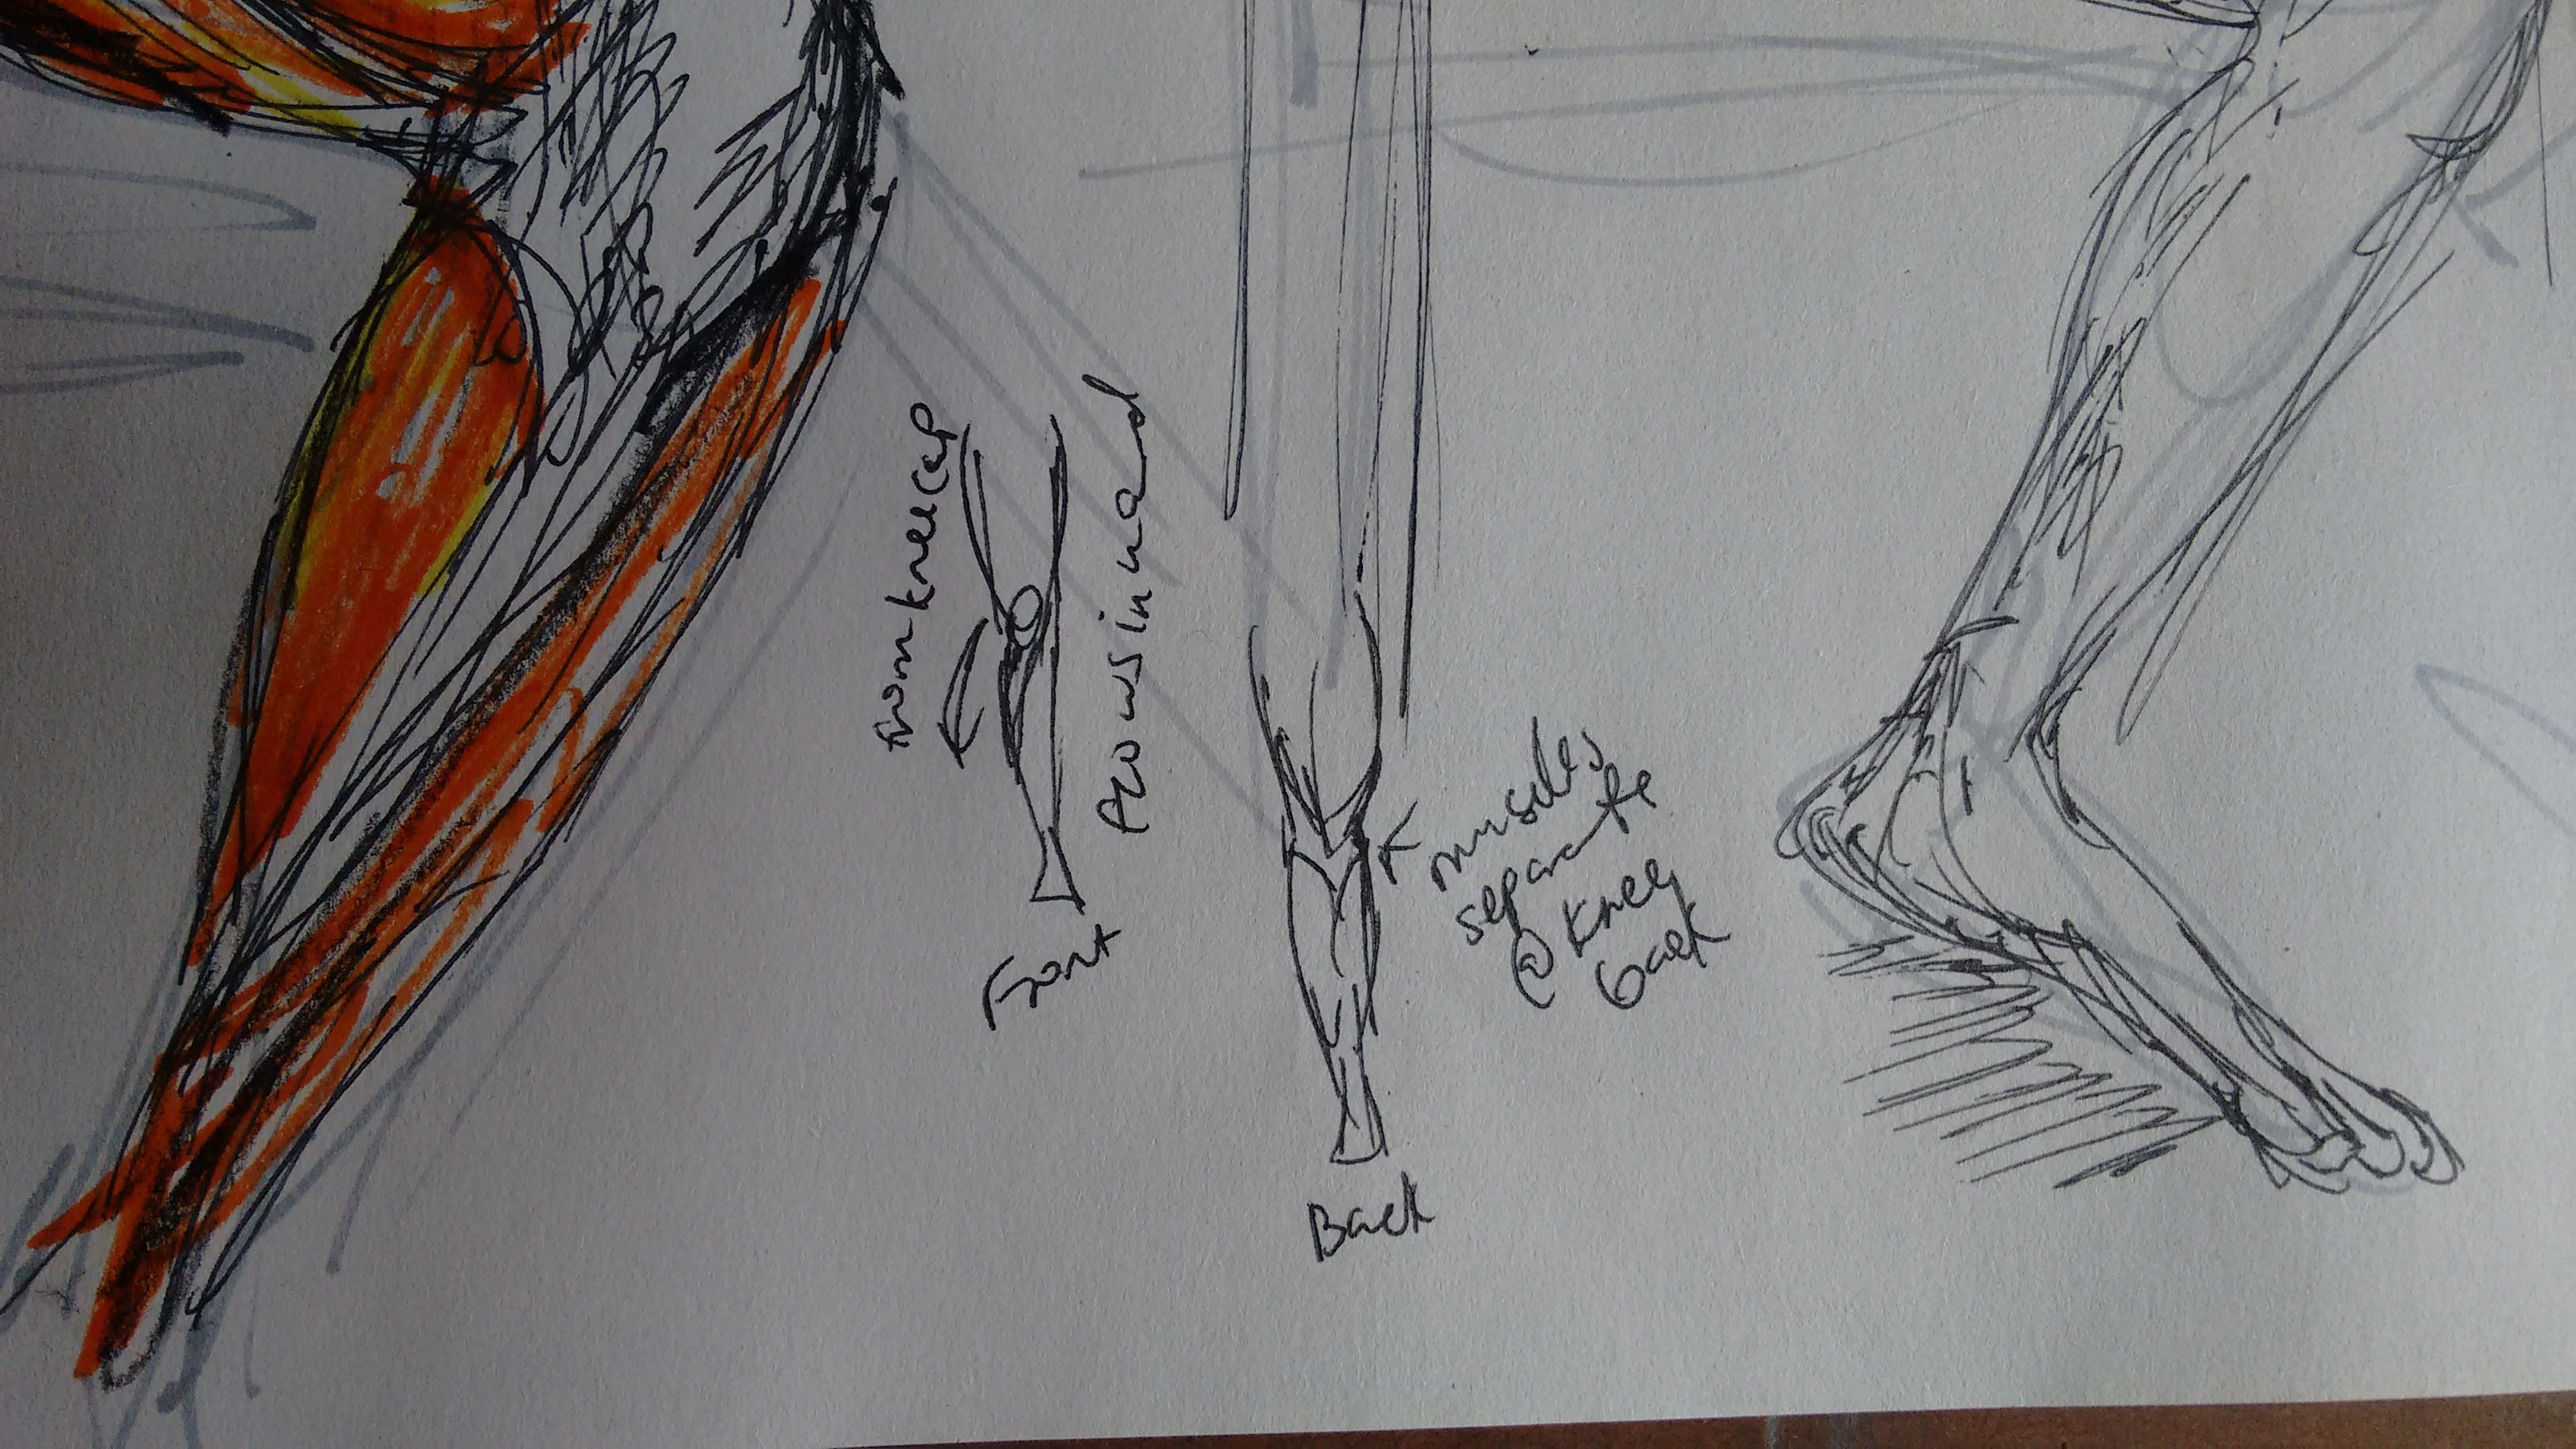 from kneecap
Plows inward
Front
muscles
separate
@ knee
back
Back